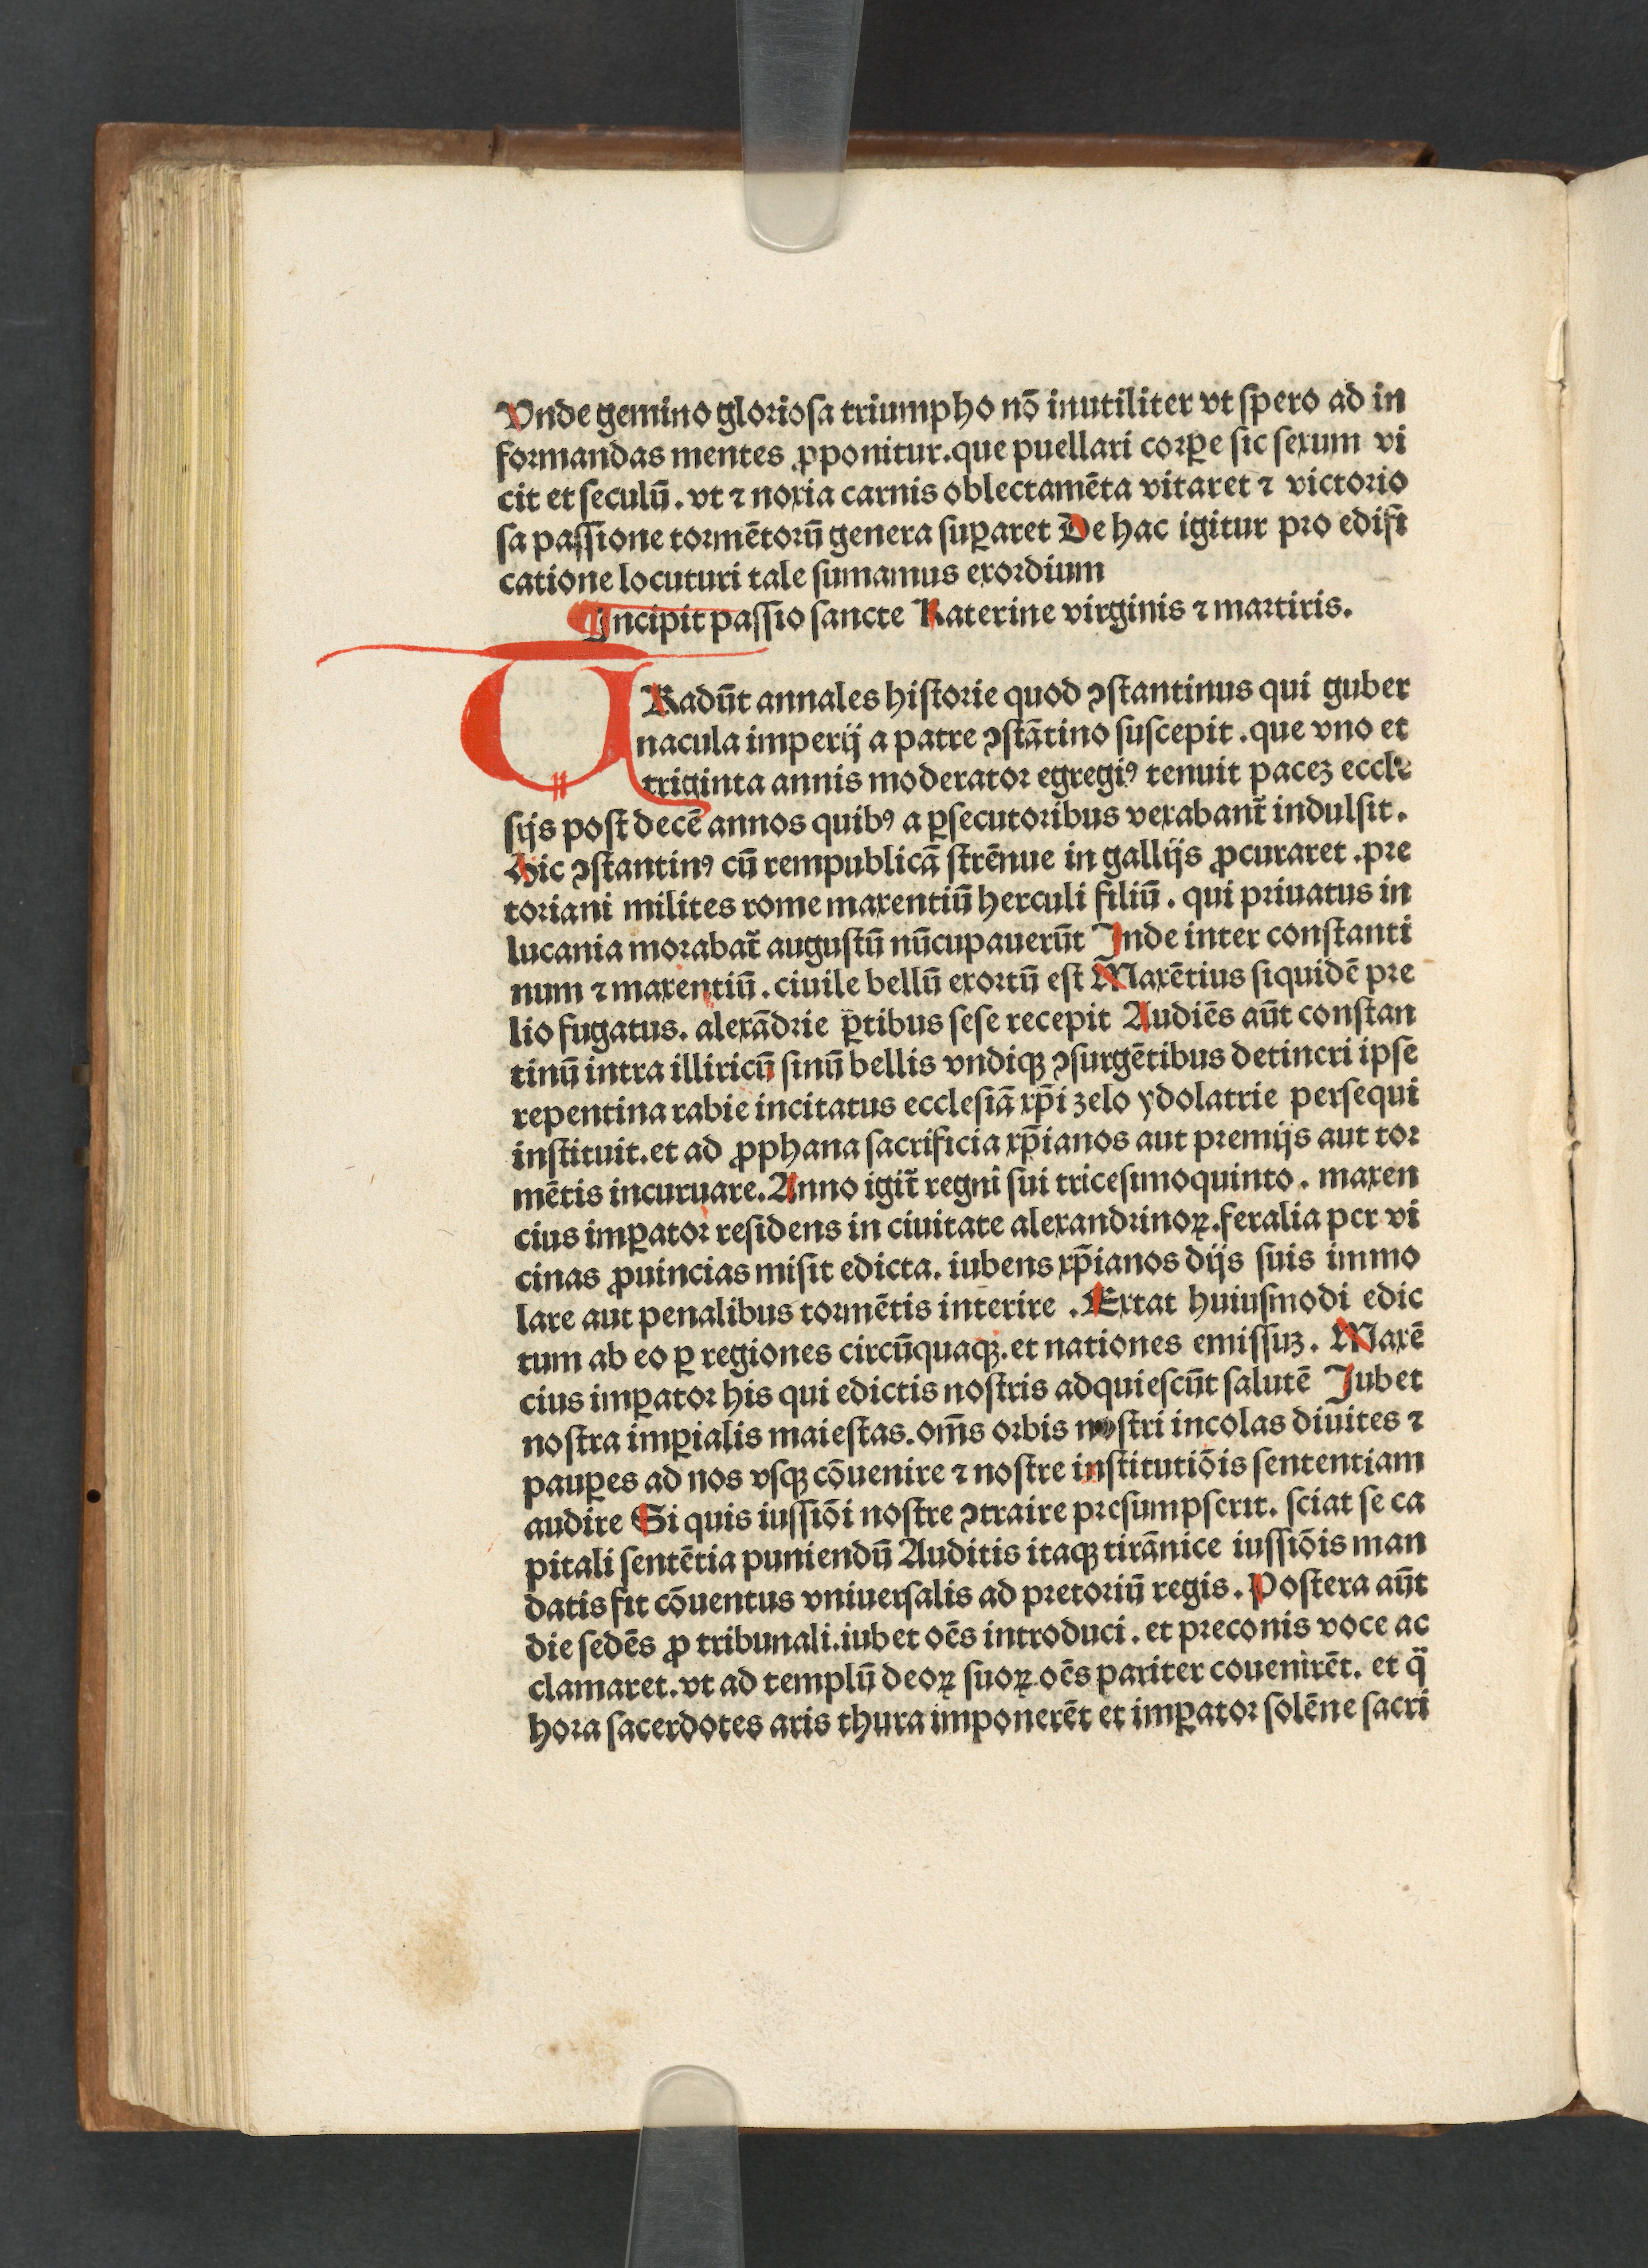 Vnde gemino glorioſa triumpho nō inutiliter vt ſpero ad in
formandas mentes ꝓponitur.que puellari corꝑe ſic ſexum vi
cit et ſeculū. vt ⁊ noxia carnis oblectamēta vitaret ⁊ victorio
ſa paſſione tormētorū genera ſuꝑaret De hac igitur pro edifi
catione locuturi tale ſumamus exordium
Incipit paſſio ſancte Katerine virginis ⁊ martiris.
TRadūt annales hiſtorie quod ꝯſtantinus qui guber
nacula imperij a patre ꝯſtātino ſuſcepit .que vno et
triginta annis moderator egregiꝰ tenuit pacez eccle
ſijs poſt decē annos quibꝰ a ꝑſecutoribus vexabant̄ indulſit.
Hic ꝯſtantinꝰ cū rempublicā ſtrēnue in gallijs ꝓcuraret .pre
toriani milites rome maxentiū herculi filiū. qui priuatus in
lucania morabat̄ auguſtū nūcupauerūt Inde inter conſtanti
num ⁊ maxentiū. ciuile bellū exortū eſt Maxētius ſiquidē pre
lio fugatus. alexādrie ꝑtibus ſeſe recepit Audiēs aūt conſtan
tinū intra illiricū ſinū bellis vndiqꝫ ꝯſurgētibus detineri ipſe
repentina rabie incitatus eccleſiā xp̄i zelo ydolatrie perſequi
inſtituit.et ad ꝓphana ſacrificia xp̄ianos aut premijs aut tor
mētis incuruare. Anno igit̄ regni ſui triceſimoquinto. maxen
cius imꝑator reſidens in ciuitate alexandrinoꝝ.feralia per vi
cinas ꝓuincias miſit edicta. iubens xp̄ianos dijs ſuis immo
lare aut penalibus tormētis interire . Extat huiuſmodi edic
tum ab eo ꝑ regiones circūquaqꝫ.et nationes emiſſuꝫ. Maxē
cius imꝑator his qui edictis noſtris adquieſcūt ſalutē Jubet
noſtra imꝑialis maieſtas.om̄s orbis noſtri incolas diuites ⁊
pauꝑes ad nos vſqꝫ cōuenire ⁊ noſtre inſtitutiōis ſententiam
audire Si quis iuſſiōi noſtre ꝯtraire preſumpſerit. ſciat ſe ca
pitali ſentētia puniendū Auditis itaqꝫ tirānice iuſſiōis man
datis fit cōuentus vniuerſalis ad pretoriū regis. Poſtera aūt
die ſedēs ꝓ tribunali.iubet oēs introduci. et preconis voce ac
clamaret.vt ad templū deoꝝ ſuoꝝ oēs pariter couenirēt. et q̄
hora ſacerdotes aris thura imponerēt et imꝑator ſolēne ſacri